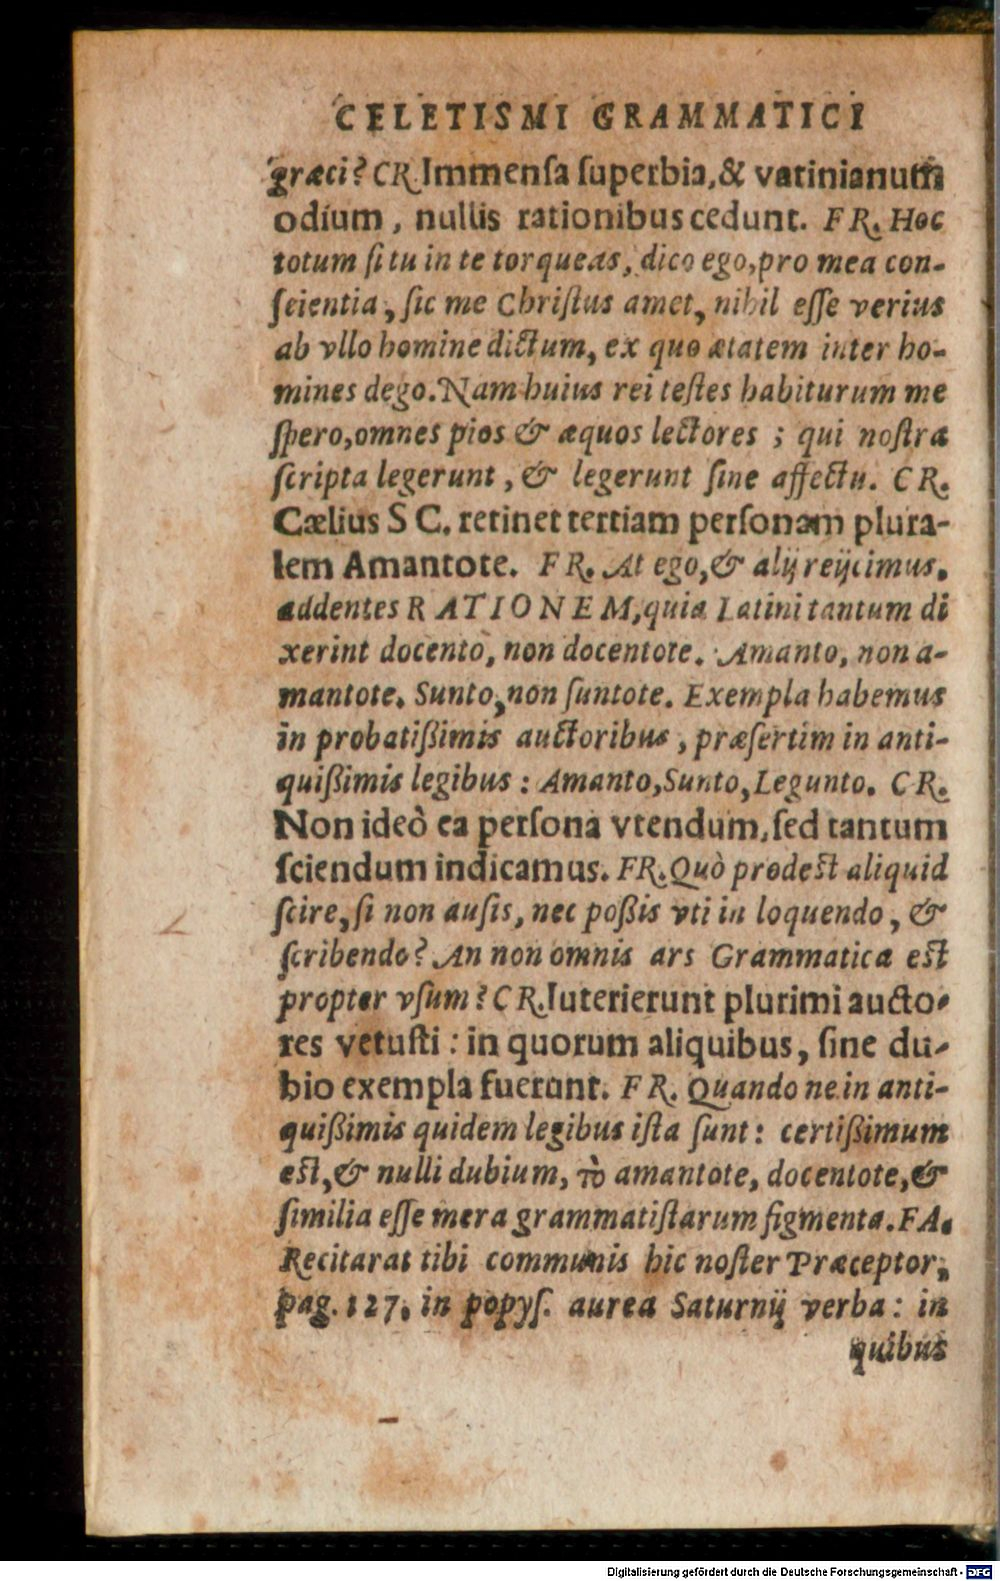 CELETISMI GRAMMATICI
græci? CR. Immenſa ſuperbia, & vatinianum
odium, nullis rationibus cedunt. FR. Hoc
totum ſi tu in te torqueas, dico ego, pro mea con-
ſcientia, ſic me Chriſtus amet, nihil eſſe verius
ab vllo homine dictum, ex quo ætatem inter ho-
mines dego. Nam huius rei teſtes habiturum me
ſpero, omnes pios & æquos lectores; qui noſtra
ſcripta legerunt, & legerunt ſine affectu. CR.
Cælius S C. retinet tertiam perſonam plura-
lem Amantote. FR. At ego, & alij reijcimus,
addentes RATIONEM, quia Latini tantum di
xerint docento, non docentote. Amanto, non a-
mantote. Sunto, non ſuntote. Exempla habemus
in probatißimis auctoribus, præſertim in anti-
quißimis legibus: Amanto, Sunto, Legunto. CR.
Non ideò ea perſona vtendum, ſed tantum
ſciendum indicamus. FR. Quò prodeſt aliquid
ſcire, ſi non auſis, nec poßis vti in loquendo, &
ſcribendo? An non omnis ars Grammatica eſt
propter vſum? CR. Iuterierunt plurimi aucto-
res vetuſti: in quorum aliquibus, ſine du-
bio exempla fuerunt. FR. Quando ne in anti-
quißimis quidem legibus iſta ſunt: certißimum
eſt, & nulli dubium, τὸ amantote, docentote, &
ſimilia eſſe mera grammatiſtarum figmenta. FA.
Recitarat tibi communis hic noſter Præceptor,
pag. 127. in popyſ. aurea Saturnij verba: in
quibus
Digitalisierung gefördert durch die Deutsche Forschungsgemeinschaft - DFG